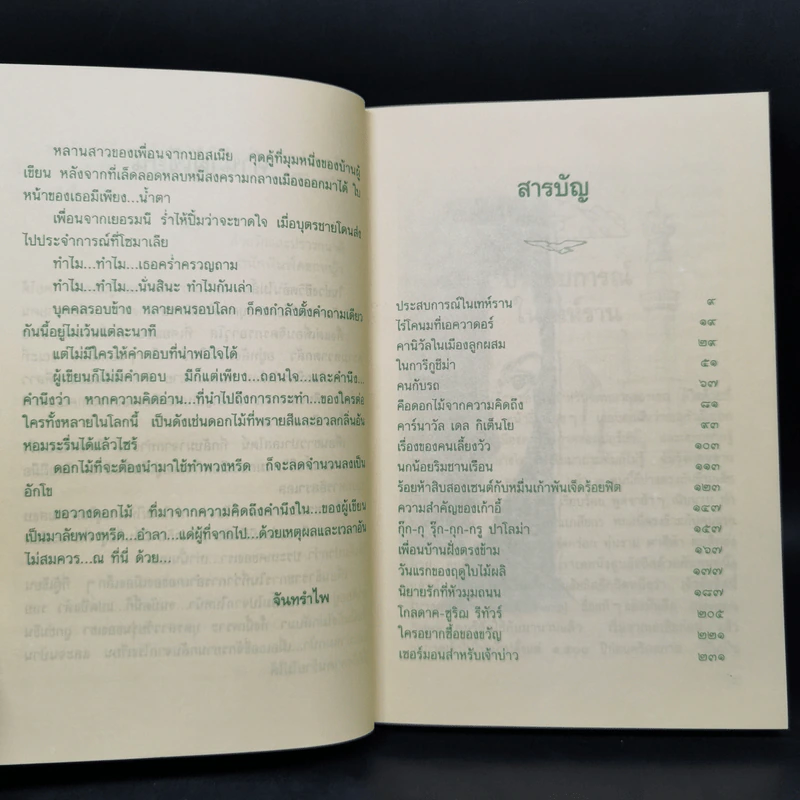 หลานสาวของเพื่อนจากบอสเนีย คุดคู้ที่มุมหนึ่งของบ้านผู้
เขียน หลังจากที่เล็ดลอดหลบหนีสงครามกลางเมืองออกมาได้ ใบ
หน้าของเธอมีเพียง...น้ำตา
เพื่อนจากเยอรมนี ร่ำไห้ปิ้มว่าจะขาดใจ เมื่อบุตรชายโดนส่ง
ไปประจำการณ์ที่โซมาเลีย
ทำไม...ทำไม...เธอคร่ำครวญถาม
ทำไม...ทำไม...นั่นสินะ ทำไมกันเล่า
บุคคลรอบข้าง หลายคนรอบโลก ก็คงกำลังตั้งคำถามเดียว
กันนี้อยู่ไม่เว้นแต่ละนาที
แต่ไม่มีใครให้คำตอบที่น่าพอใจได้
ผู้เขียนก็ไม่มีคำตอบ มีก็แต่เพียง...ถอนใจ...และคำนึง...
คำนึงว่า หากความคิดอ่าน...ที่นำไปถึงการกระทำ...ของใครต่อ
ใครทั้งหลายในโลกนี้ เป็นดังเช่นดอกไม้ที่พรายสีและอวลกลิ่นอัน
หอมระรื่นได้แล้วไซร้
ดอกไม้ที่จะต้องนำมาใช้ทำพวงหรีด ก็จะลดจำนวนลงเป็น
อักโข
ขอวางดอกไม้ ที่มาจากความคิดถึงคำนึงใน...ของผู้เขียน
เป็นมาลัยพวงหรีด...อำลา...แด่ผู้ที่จากไป...ด้วยเหตุผลและเวลาอัน
ไม่สมควร...ณ ที่นี่ ด้วย...
จันทรำไพ
สารบัญ
ประสบการณ์ในเทห์ราน ๙
ไร่โคนมที่เอควาดอร์ ๑๙
คานิวัลในเมืองลูกผสม ๒๙
ในการีกูชีม่า ๕๑
คนกับรถ ๖๗
คือดอกไม้จากความคิดถึง ๘๑
คาร์นาวัล เดล กิเต็นโย ๙๓
เรื่องของคนเลี้ยงวัว ๑๐๓
นกน้อยริมชานเรือน ๑๑๓
ร้อยห้าสิบสองเซนต์กับหมื่นเก้าพันเจ็ดร้อยฟิต ๑๒๓
ความสำคัญของเก้าอี้ ๑๔๗
กุ๊ก-กุ รุ๊ก-กุก-กรู ปาโลม่า ๑๕๗
เพื่อนบ้านฝั่งตรงข้าม ๑๖๗
วันแรกของฤดูใบไม้ผลิ ๑๗๗
นิยายรักที่หัวมุมถนน ๑๘๗
โกลดาค-ซูริฌ รีทัวร์ ๒๐๕
ใครอยากซื้อของขวัญ ๒๒๑
เซอร์มอนสำหรับเจ้าบ่าว ๒๓๑